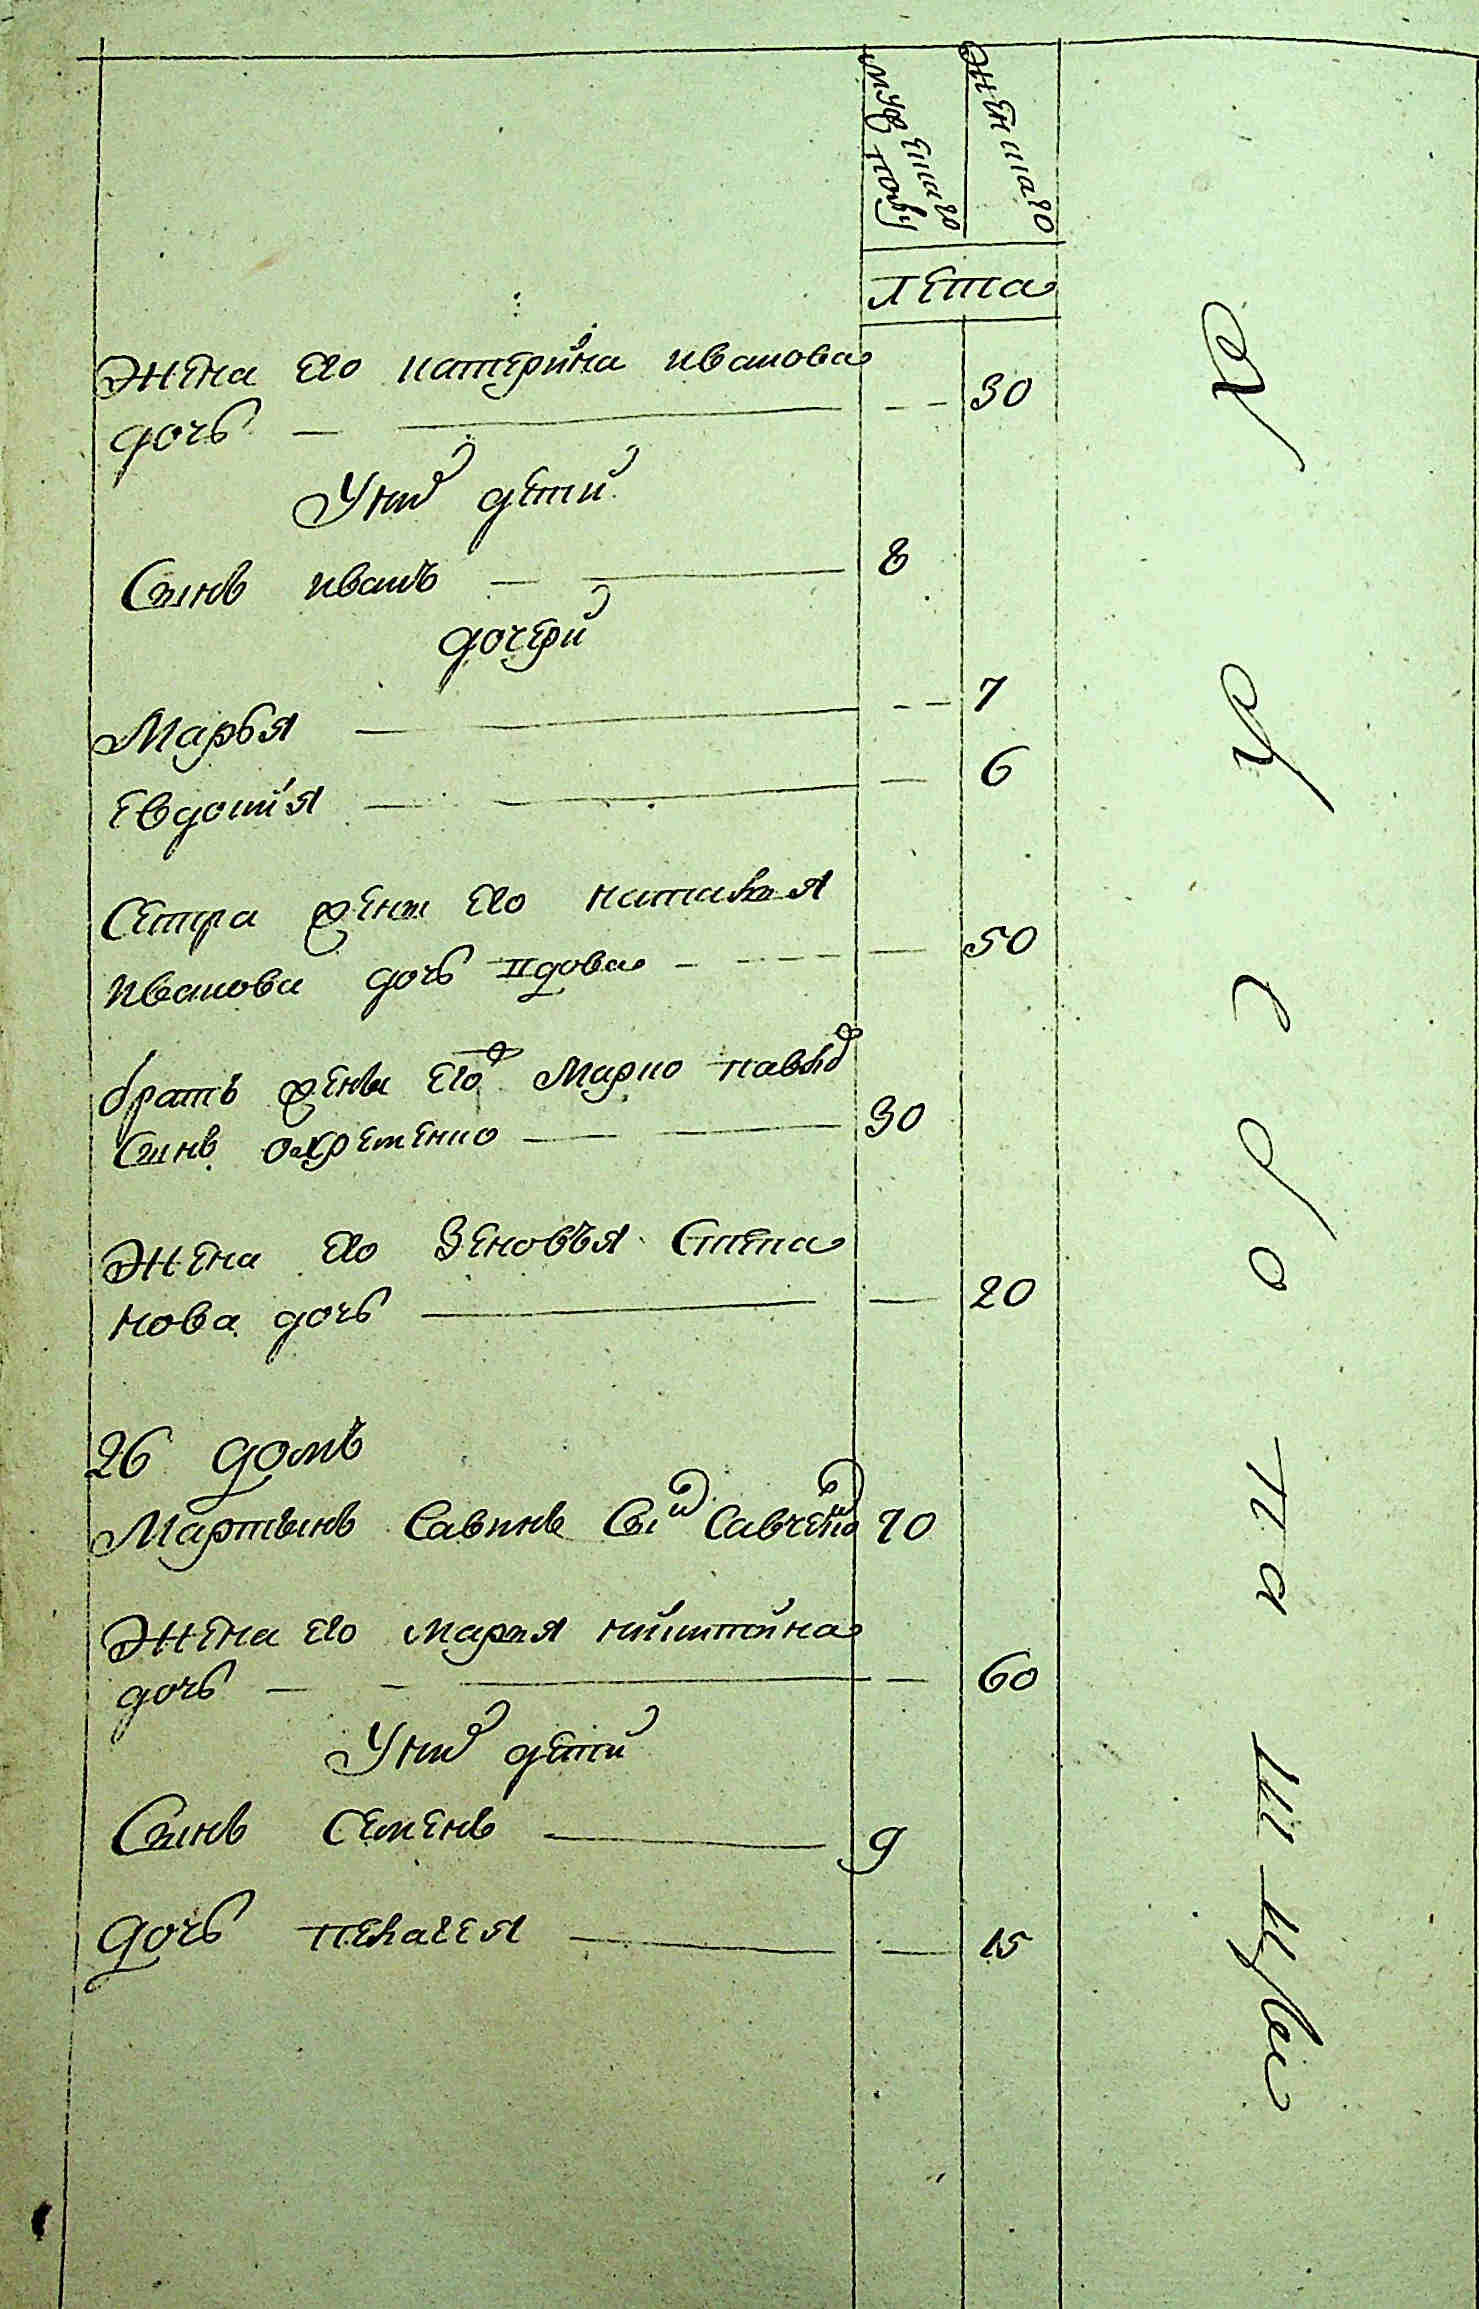 мужеского полу
женскаго
лета
жена его катерина иванова
дочь 30
У них дети
Сынъ иванъ 8
дочери
Марья 7
Евдокія 6
Сестра жены его наталья
иванова дочь вдова 50
братъ жены его Марко
Сынъ охременко 30
жена его Зеновъя Степа
нова дочь 20
26 домъ
Мартынъ Савинъ Сынъ Савченко 70
жена его марья никитина
дочь 60
У них дети
Сынъ Семенъ 9
дочь пелагея 15